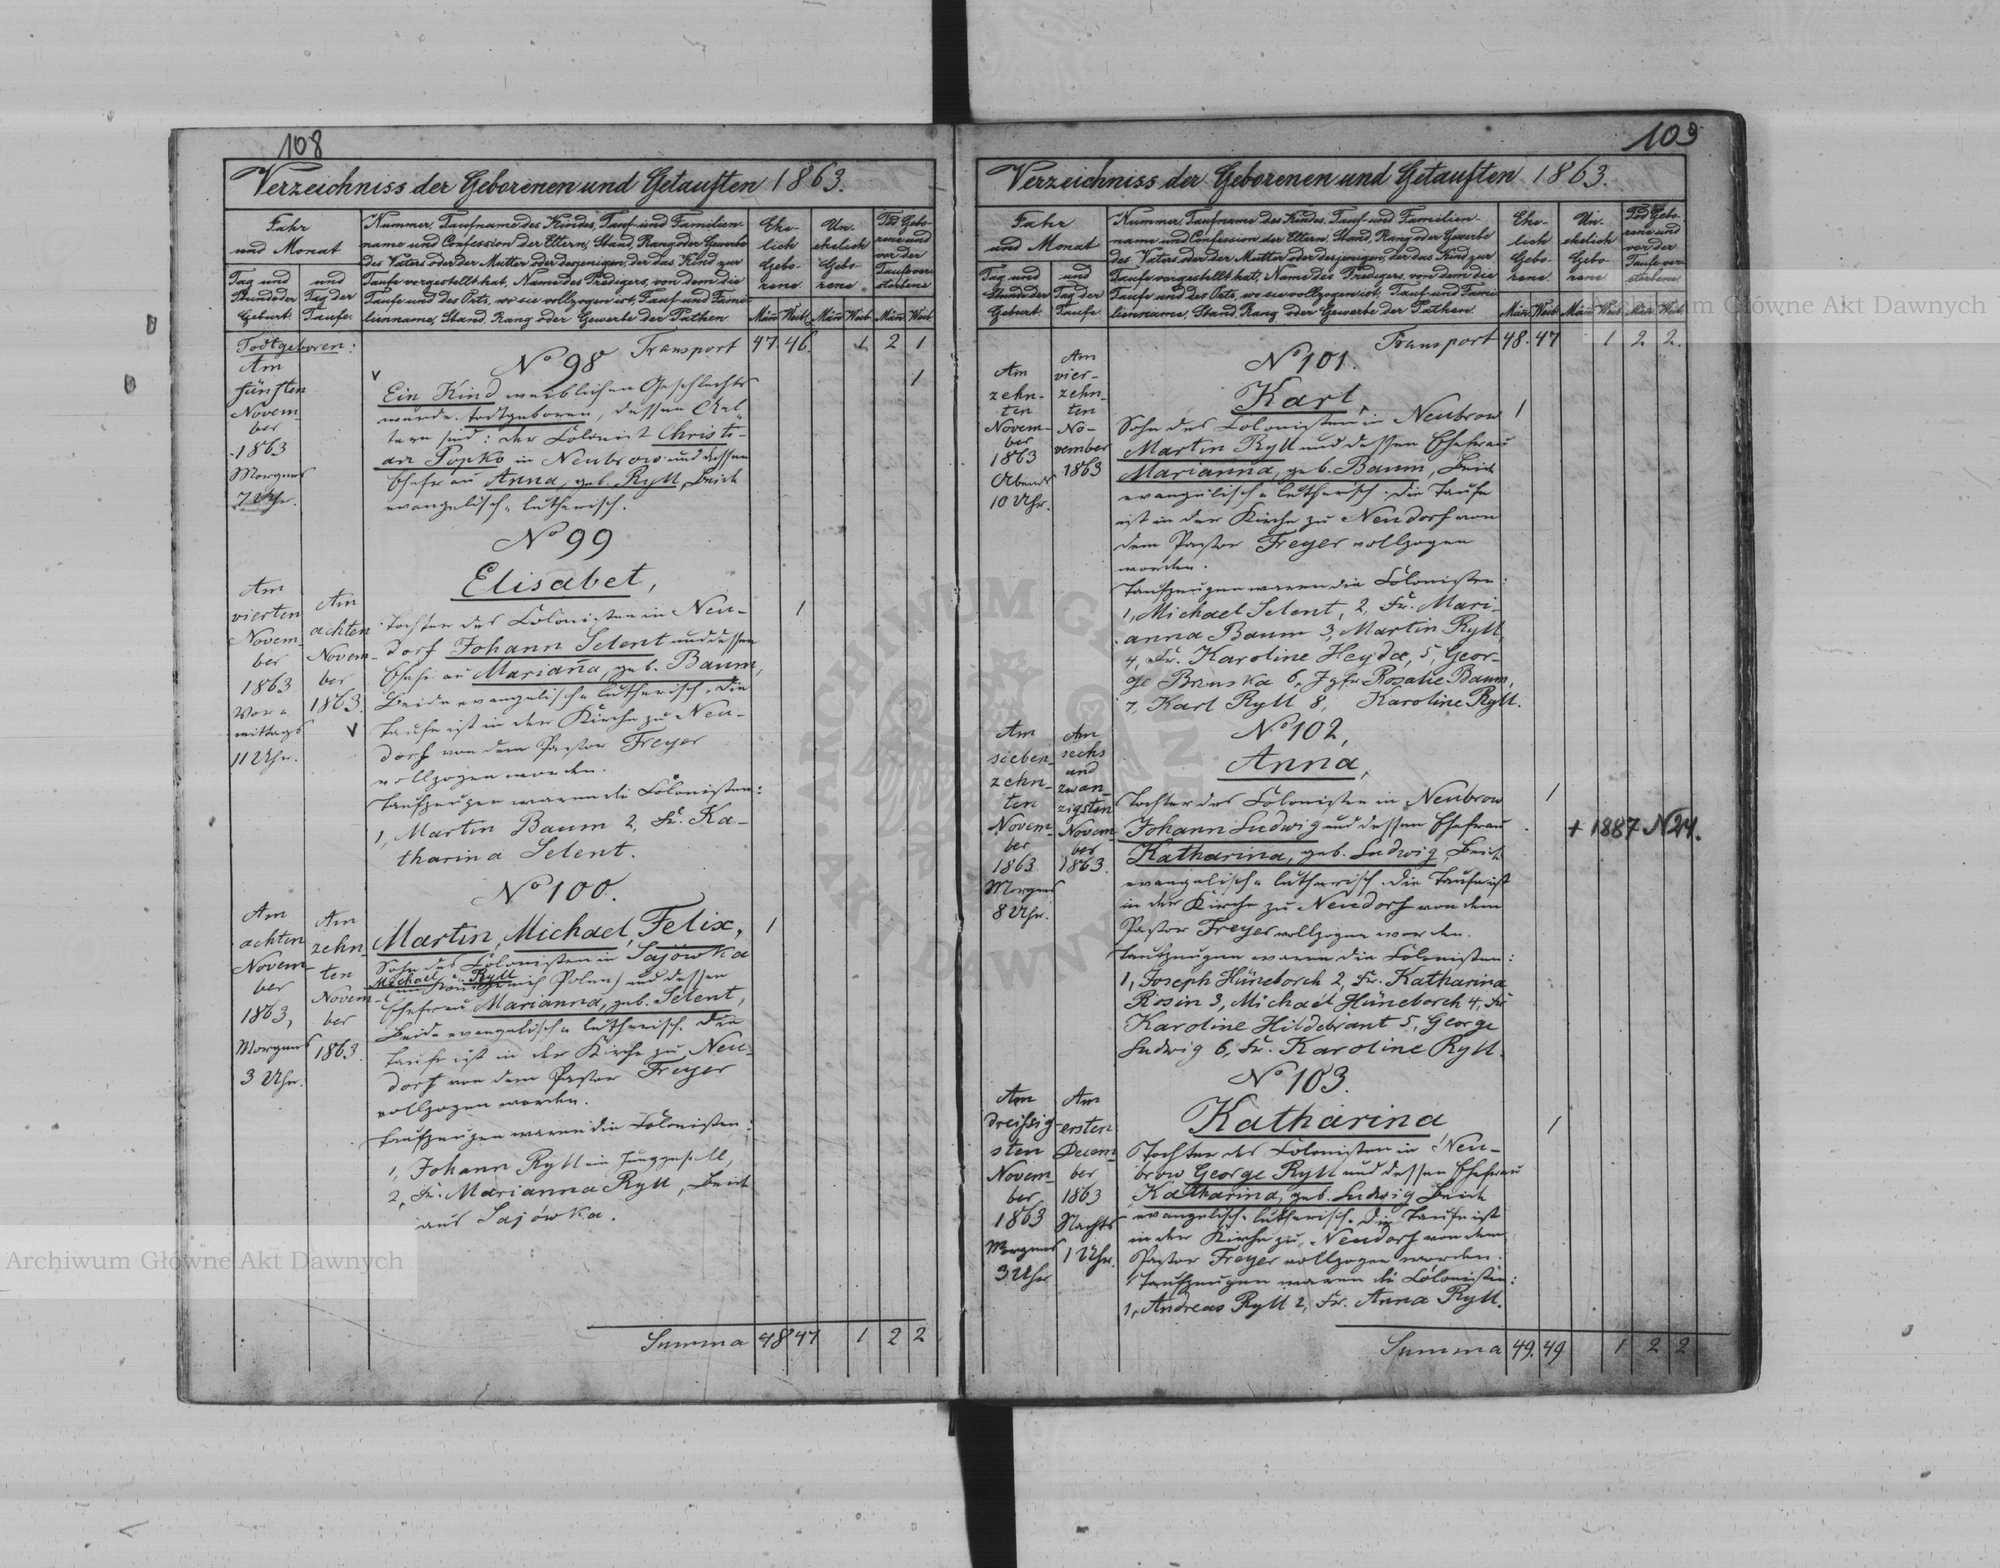 108
Verzeichniss der Geborenen und Getauften 1863.
Jahr und Monat
Tag und Stunde der Geburt.
und Tag der Taufe.
Nummer, Taufname des Kindes, Tauf- und Familien-
name und Confession der Eltern, Stand, Rang oder Gewerbe
des Vaters oder der Mutter oder desjenigen, der das Kind zur
Taufe vorgestellt hat, Name des Predigers, von dem die
Taufe und des Orts, wo sie vollzogen ist, Tauf- und Fami-
lienname, Stand, Rang oder Gewerbe der Pathen.
Ehe-
lich
Gebo-
rene.
Un-
ehelich
Gebo-
rene.
Tod Gebo-
rene und
vor der
Taufe ver-
storbene
Män Weib. Män Weib. Män Weib.
Todtgeboren:
Transport 47 46. 1 2 1
Am
fünften
Novem-
ber
1863
Morgens
7 Uhr.
No 98
Ein Kind weiblichen Geschlechts 1
wurde todtgeboren, dessen Ael-
tern sind: der Colonist Christi-
an Popko in Neubrow und dessen
Ehefrau Anna, geb. Ryll, Beide
evangelisch-lutherisch.
Am
vierten
Novem-
ber
1863
Vor-
mittags
11 Uhr.
Am
achten
Novem-
ber
1863.
No 99
Elisabet,
Tochter des Colonisten in Neu- 1
dorf Johann Selent und dessen
Ehefrau Marianna, geb. Baum,
Beide evangelisch-lutherisch. Die
Taufe ist in der Kirche zu Neu-
dorf von dem Pastor Freyer
vollzogen worden.
Taufzeugen waren die Colonisten:
1, Martin Baum 2, Fr. Ka-
tharina Selent.
Am
achten
Novem-
ber
1863,
Morgens
3 Uhr.
Am
zehn-
ten
Novem-
ber
1863.
No 100.
Martin, Michael, Felix, 1
Sohn des Colonisten in Sajówka
Michael Ryll
im Königreich Polen) und dessen
Ehefrau Marianna, geb. Selent,
Beide evangelisch-lutherisch. Die
Taufe ist in der Kirche zu Neu-
dorf von dem Pastor Freyer
vollzogen worden.
Taufzeugen waren die Colonisten:
1, Johann Ryll ein Junggesell,
2, Fr. Marianna Ryll, Beide
aus Sajówka.
Summa 48 47 1 2 2
109
Verzeichniss der Geborenen und Getauften 1863.
Jahr und Monat
Tag und Stunde der Geburt.
und Tag der Taufe.
Nummer, Taufname des Kindes, Tauf- und Familien-
name und Confession der Eltern, Stand, Rang oder Gewerbe
des Vaters oder der Mutter oder desjenigen, der das Kind zur
Taufe vorgestellt hat, Name des Predigers, von dem die
Taufe und des Orts, wo sie vollzogen ist, Tauf- und Fami-
lienname, Stand, Rang oder Gewerbe der Pathen.
Ehe-
lich
Gebo-
rene.
Un-
ehelich
Gebo-
rene
Tod Gebo-
rene und
vor der
Taufe ver-
storbene
Män Weib. Män Weib. Män Weib.
Transport 48. 47 1 2 2.
Am
zehn-
ten
Novem-
ber
1863
Abends
10 Uhr.
Am
vier-
zehn-
ten
No-
vember
1863
No 101.
Karl,
Sohn des Colonisten in Neubrow 1
Martin Ryll und dessen Ehefrau
Marianna, geb. Baum, Beide
evangelisch-lutherisch. Die Taufe
ist in der Kirche zu Neudorf von
dem Pastor Freyer vollzogen
worden.
Taufzeugen waren die Colonisten:
1, Michael Selent, 2, Fr. Mari-
anna Baum 3, Martin Ryll,
4, Fr. Karoline Heyda, 5, Geor-
ge Brinska 6, Jgfr. Rosalie Baum,
7, Karl Ryll 8, Karoline Ryll.
Am
sieben-
zehn-
ten
Novem-
ber
1863.
Morgens
8 Uhr.
Am
sechs
und
zwan-
zigsten
Novem-
ber
1863.
No 102,
Anna,
Tochter des Colonisten in Neubrow 1
Johann Ludwig und dessen Ehefrau
+ 1887 N 24.
Katharina, geb. Ludwig, Beide
evangelisch-lutherisch. Die Taufe ist
in der Kirche zu Neudorf von dem
Pastor Freyer vollzogen worden.
Taufzeugen waren die Colonisten:
1, Joseph Hüneborch 2, Fr. Katharina
Rosin 3, Michael Hüneborch 4, Fr.
Karoline Hildebrant 5, George
Ludwig 6, Fr. Karoline Ryll.
Am
dreissig-
sten
Novem-
ber
1863
Morgens
3 Uhr
Am
ersten
Decem-
ber
1863
Nachts
1 Uhr.
No 103.
Katharina
Tochter des Colonisten in Neu- 1
brow George Ryll und dessen Ehefrau
Katharina, geb. Ludwig Beide
evangelisch-lutherisch. Die Taufe ist
in der Kirche zu Neudorf von dem
Pastor Freyer vollzogen worden.
Taufzeugen waren die Colonisten:
1, Andreas Ryll 2, Fr. Anna Ryll.
Summa 49. 49 1 2 2
Archiwum Główne Akt Dawnych
Archiwum Główne Akt Dawnych